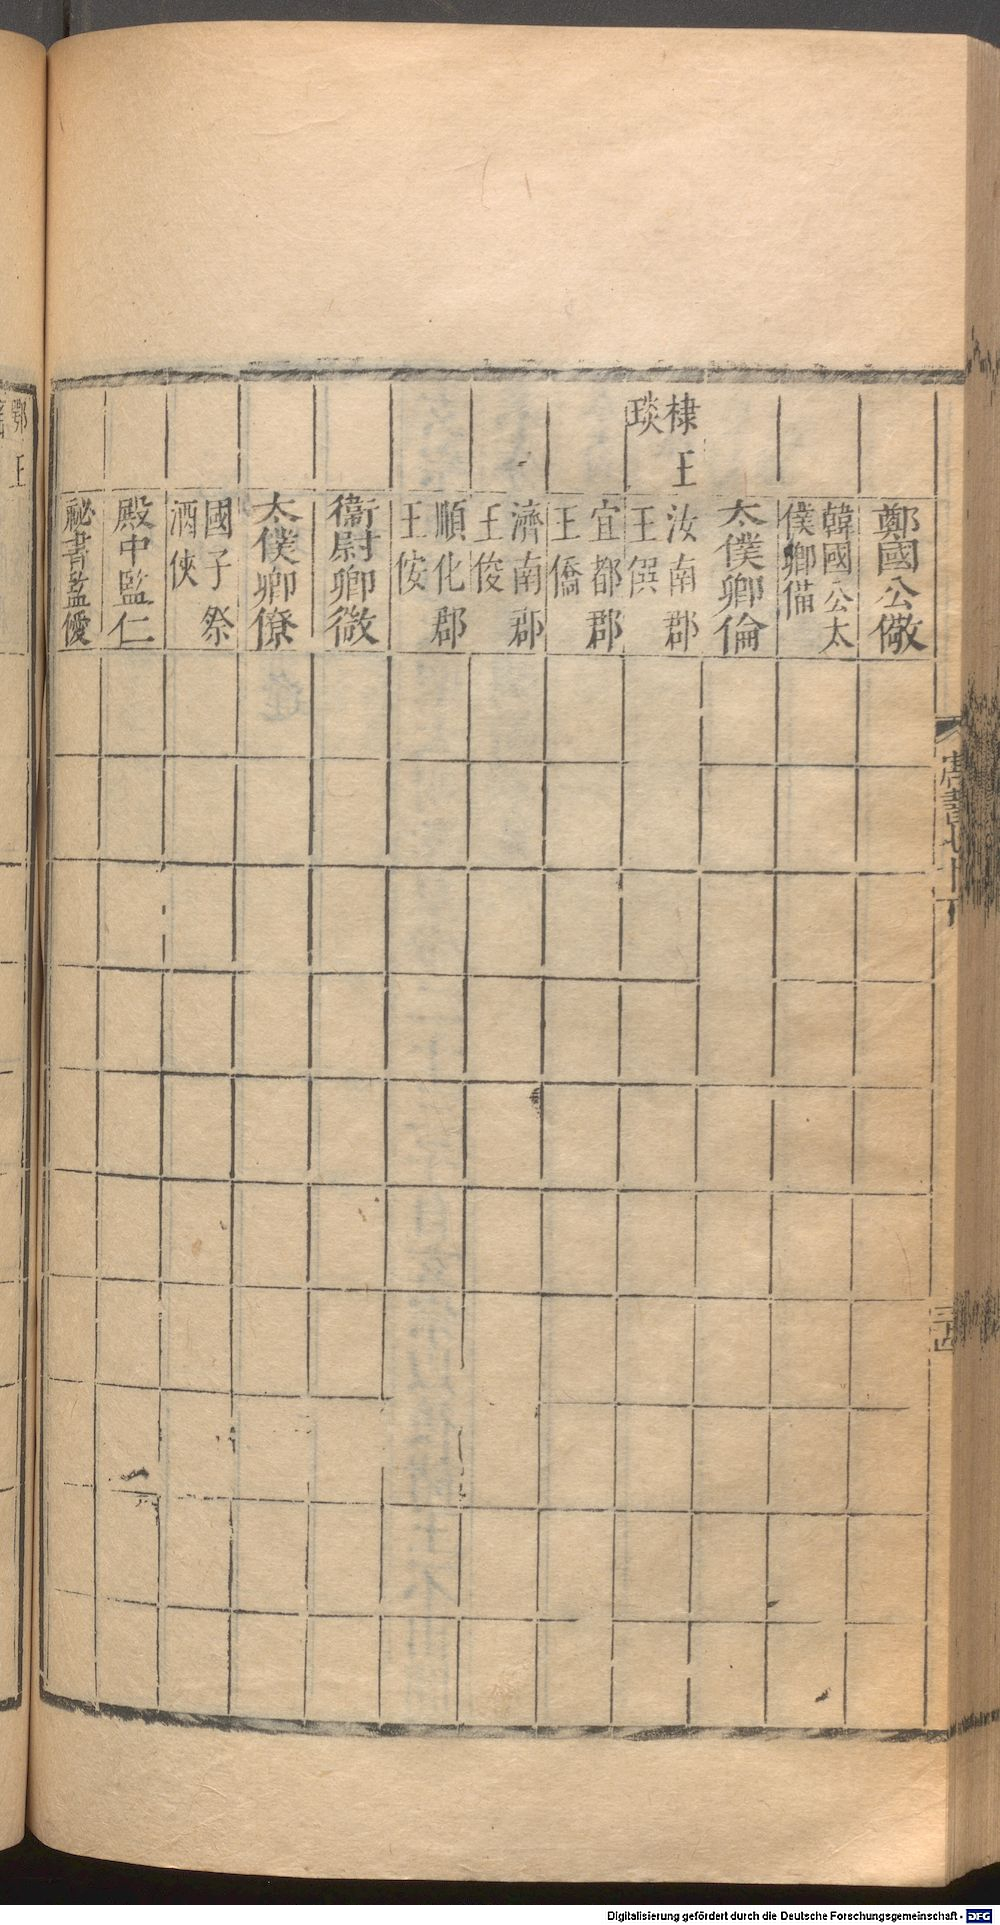 鄭國公儆
韓國公太
僕卿備
太僕卿倫
棣王
琰
汝南郡
王僎
宜都郡
王僑
濟南郡
王俊
順化郡
王侒
衞尉卿微
太僕卿僚
國子祭
酒俠
殿中監仁
祕書監優
唐書七十下
三四
鄂王
Digitalisierung gefördert durch die Deutsche Forschungsgemeinschaft - DFG